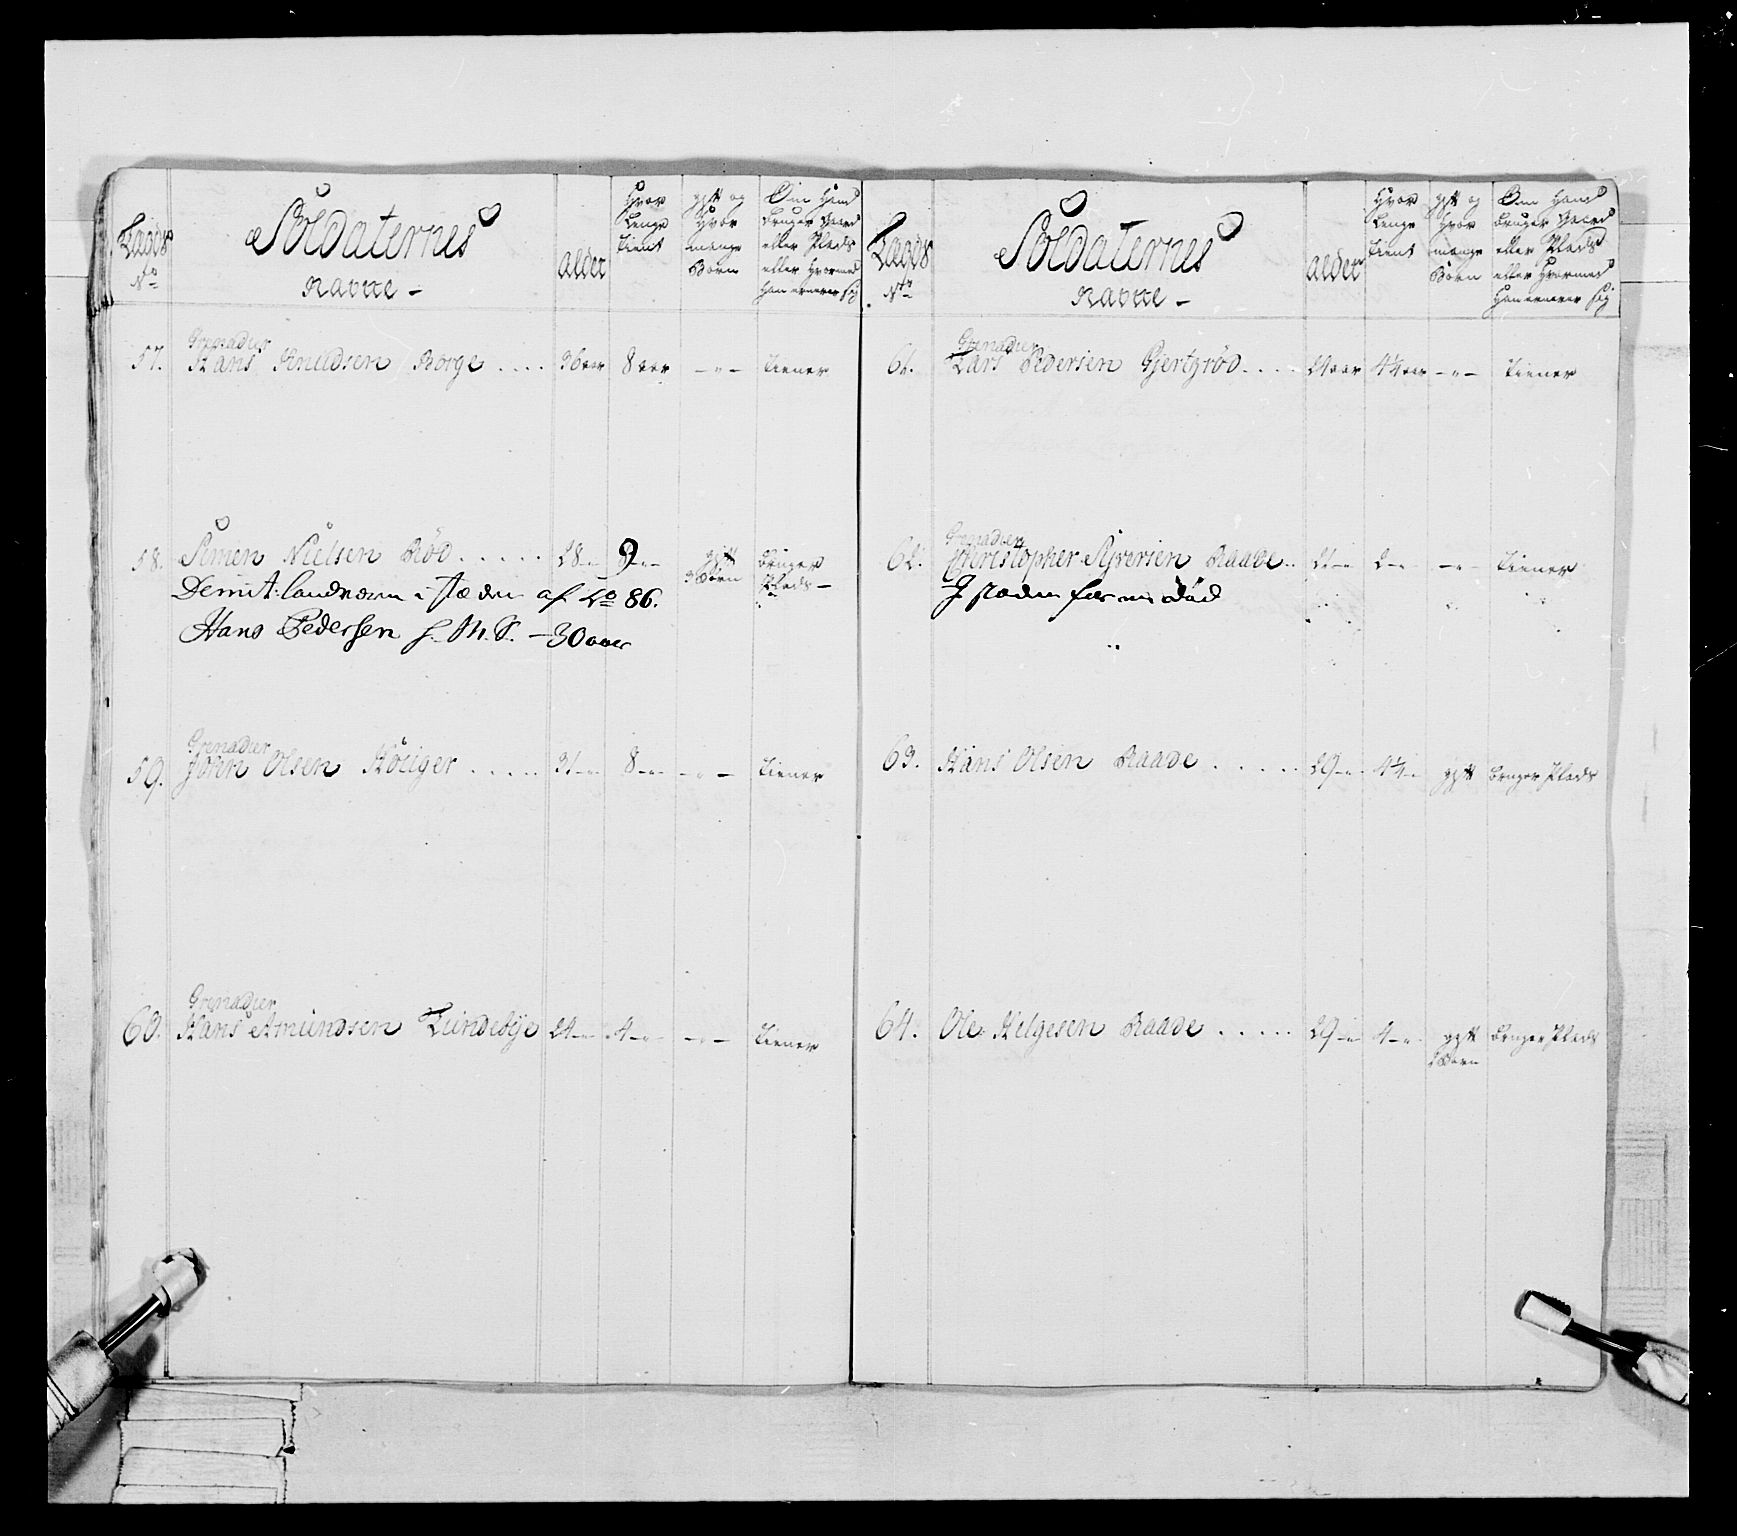 Lægds No
Soldaternes
Navne -
alder
Hvor
Lenge
tient
gift og
Hvor
mange
Børn
Om Hand
bruger Gaard
eller Plads
eller Hvormed
Han ernerer sig
57. Grenadier
Hans Knudsen Borge .... 36 aar 8 aar -"- tiener
58. Simen Nielsen Röd ..... 28 -"- 9 -"- gift 3 Børn bruger Plads -
Demit: landværn i stæden af No 86.
Hans Pedersen S. M. S. - 30 aar
59. Grenadier
John Olsen Höliger ..... 31 -"- 8 -"- -"- tiener
60. Grenadier
Hans Amundsen Lundebye 24 -"- 4 -"- -"- tiener
Lægds No
Soldaternes
Navne -
alder
Hvor
Lenge
tient
gift og
Hvor
mange
Børn
Om Hand
bruger Gaard
eller Plads
eller Hvormed
Han ernerer sig
61. Grenadier
Lars Pedersen Gjertzröd .... 24 aar 4 1/4 aar -"- tiener
62. Grenadier
Christopher Syversen Raade .. 21 -"- 2 -"- -"- tiener
I staden for en död
63. Hans Olsen Raade ..... 29 -"- 4 1/4 -"- gift bruger Plads
64. Ole Helgesen Raade ..... 29 -"- 4 -"- gift
Børn bruger Plads